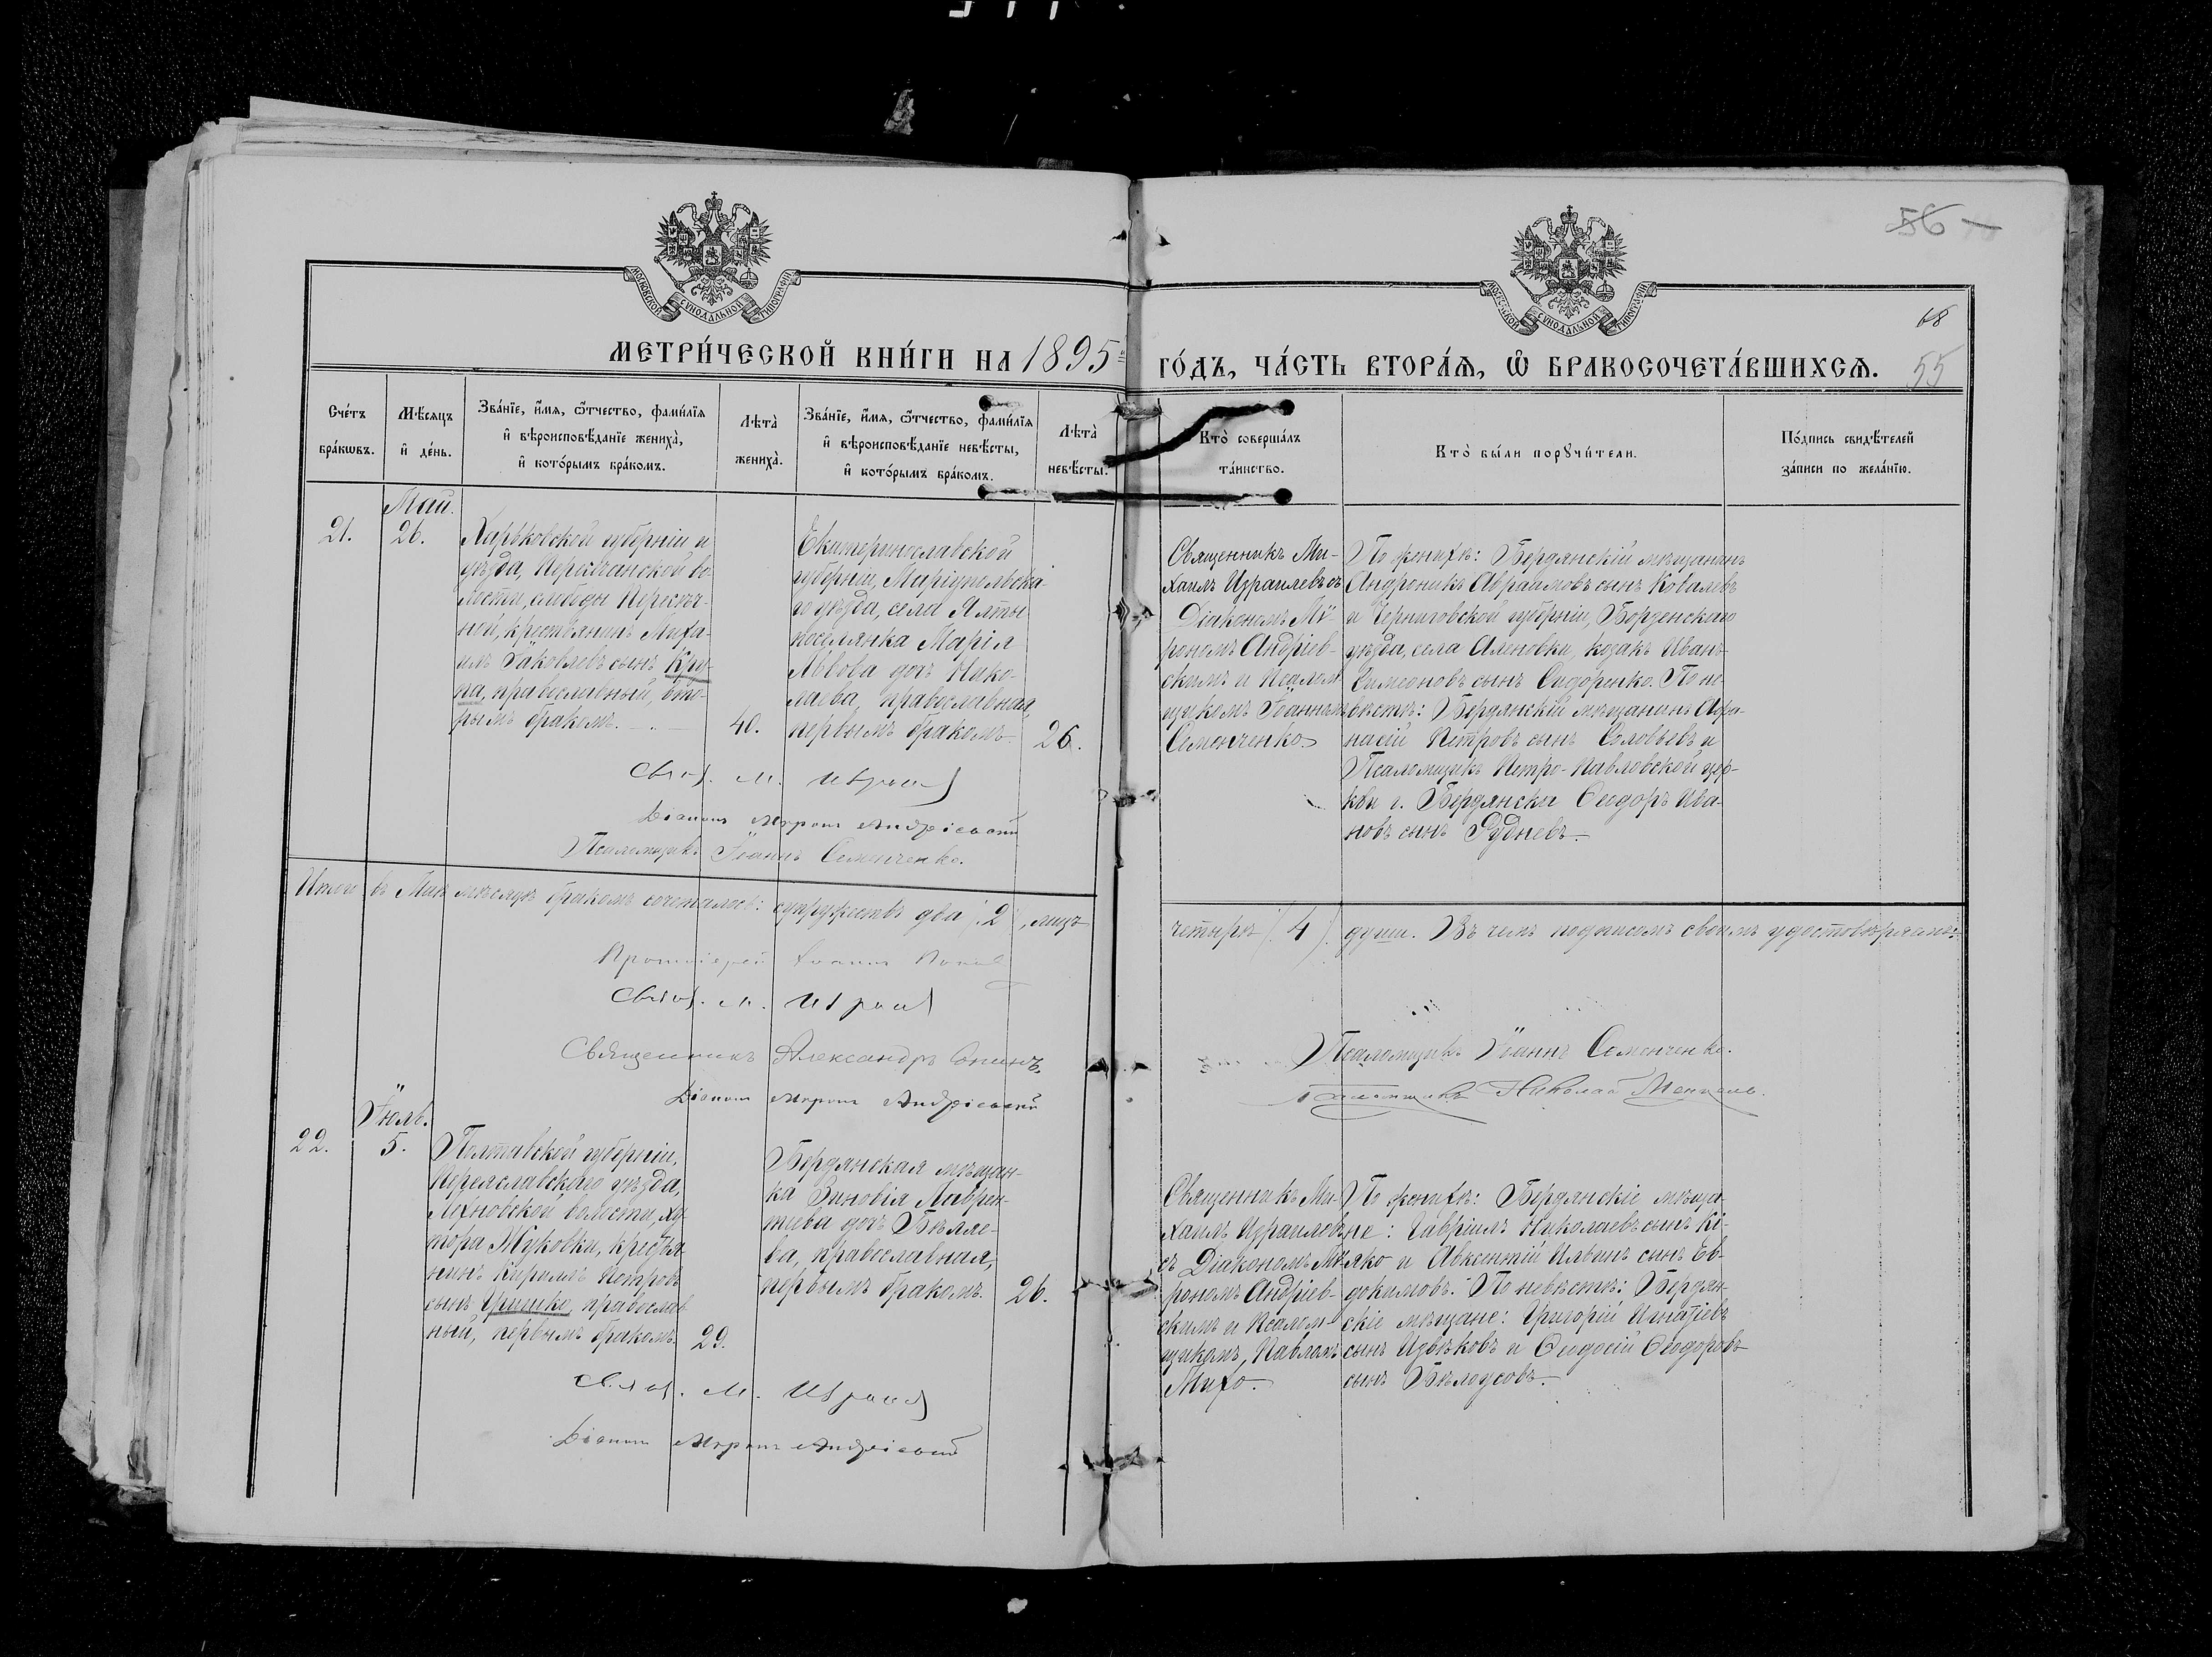 56
МОСКОВСКОЙ СУНОДАЛЬНОЙ ТИПОГРАФІИ
МОСКОВСКОЙ СУНОДАЛЬНОЙ ТИПОГРАФІИ
68
МЕТРИ́ЧЕСКОЙ КНИ́ГИ НА 1895 ГО́ДЪ, ЧА́СТЬ ВТОРА́Ѧ, Ѡ҆ БРАКОСОЧЕТА́ВШИХСѦ.
55
Сче́тъ бра́кѡвъ.
Мѣ́сѧцъ и҆ де́нь.
Зва́нїе, и҆́мѧ, ѻ҆́тчество, фами́лїѧ и҆ вѣроисповѣ́данїе жениха̀, и҆ кото́рымъ бра́комъ.
Лѣта̀ жениха̀.
Зва́нїе, и҆́мѧ, ѻ҆́тчество, фами́лїѧ и҆ вѣроисповѣ́данїе невѣ́сты, и҆ кото́рымъ бра́комъ.
Лѣта̀ невѣ́сты.
Кто̀ соверша́лъ та́инство.
Кто̀ бы́ли порꙋчи́тели.
По́дпись свидѣ́телей за́писи по жела́нїю.
Май.
21.
26.
Харьковской губерніи и
уѣзда, Пересѣчанской во-
лости, слободы Пересѣч-
ной, крестьянинъ Миха-
илъ Іаковлевъ сынъ Кру-
па, православный, вто-
рымъ бракомъ.
40.
Екатеринославской
губерніи, Маріупольска-
го уѣзда, села Ялты
поселянка Марія
Львова дочь Нико-
лаева, православная,
первымъ бракомъ.
26.
Священникъ Ми-
хаилъ Израилевъ съ
Діакономъ Мѵ-
рономъ Андріев-
скимъ и Псалом-
щикомъ Іоанномъ
Семенченко.
По женихѣ: Бердянскій мѣщанинъ
Андроникъ Авраамовъ сынъ Ковалевъ
и Черниговской губерніи, Борзенскаго
уѣзда, села Аленовки, козакъ Иванъ
Симеоновъ сынъ Сидоренко. По не-
вѣстѣ: Бердянскій мѣщанинъ Афа-
насій Петровъ сынъ Соловьевъ и
Псаломщикъ Петро-Павловской цер-
кви г. Бердянска Ѳеодоръ Ива-
новъ сынъ Рудневъ.
Діаконъ Миронъ Андріевскій
Псаломщикъ Іоаннъ Семенченко.
Итого въ Маѣ мѣсяцѣ бракомъ сочеталось: супружествъ два (2), лицъ
четыре (4) души. Въ чемъ подписомъ своимъ удостовѣряемъ:
Протоіерей Іоаннъ
Священникъ Александръ
Діаконъ Миронъ Андріевскій
Псаломщикъ Іоаннъ Семенченко.
Псаломщикъ Николай
Іюль.
22.
5.
Полтавской губерніи,
Переяславскаго уѣзда,
Лехновской волости, ху-
тора Мужовки, крестья-
нинъ Кириллъ Петровъ
сынъ Гришко, православ-
ный, первымъ бракомъ.
29.
Бердянская мѣщан-
ка Зиновія Лаврен-
тіева дочь Бѣляе-
ва, православная,
первымъ бракомъ.
26.
Священникъ Ми-
хаилъ Израилевъ
съ Діакономъ Мѵ-
рономъ Андріев-
скимъ и Псалом-
щикомъ, Павломъ
Михо.
По женихѣ: Бердянскіе мѣща-
не: Гавріилъ Николаевъ сынъ Кі-
яко и Авксентій Ильинъ сынъ Ев-
докимовъ. По невѣстѣ: Бердян-
скіе мѣщане: Григорій Игнатіевъ
сынъ Извѣковъ и Ѳедосій Ѳеодоровъ
сынъ Бѣлоусовъ.
Діаконъ Миронъ Андріевскій